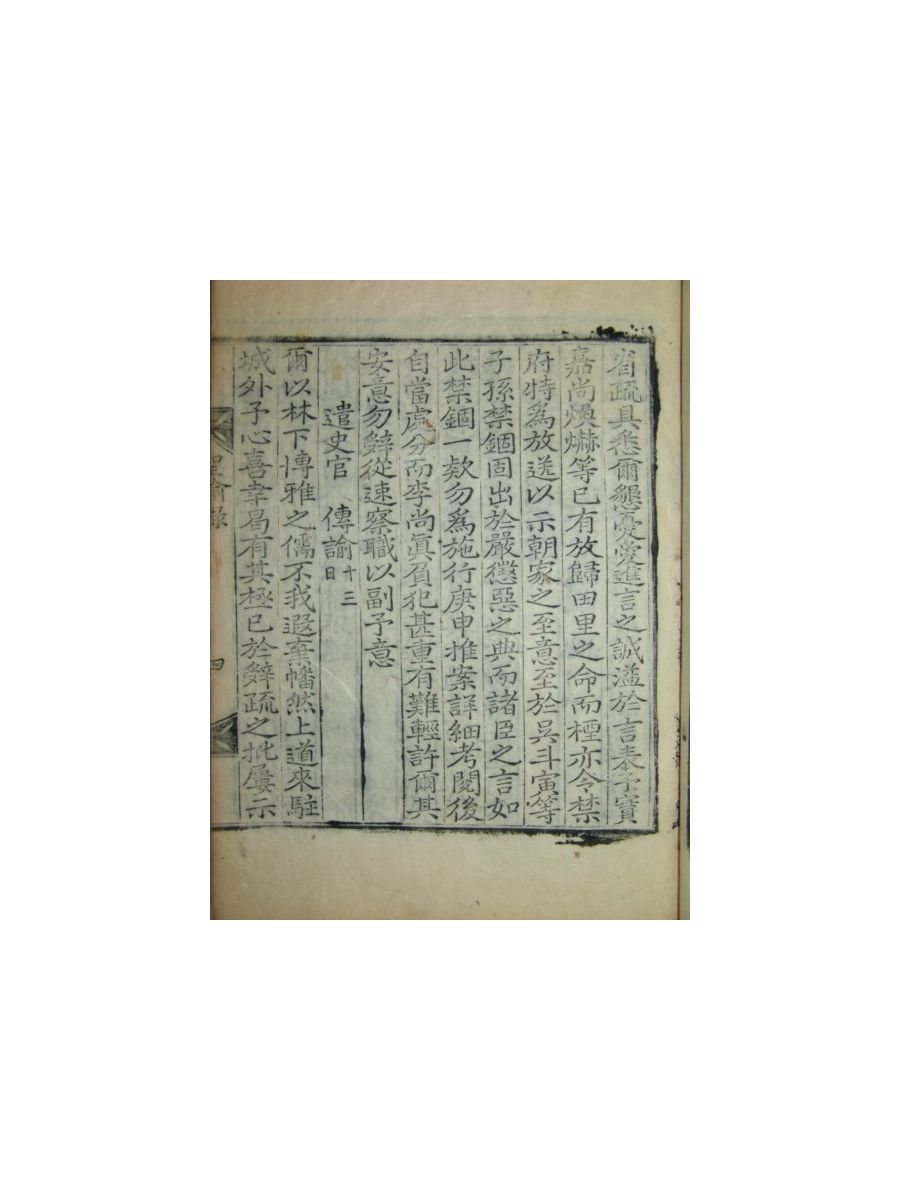 省疏具悉爾懇憂愛進言之誠溢於言表予寶
嘉尚煥爀等已有放歸田里之命而極亦令禁
府特為放送以示朝家之至意至於吳斗寅等
子孫禁錮固出於嚴懲惡之典而諸臣之言如
此禁錮一欵勿為施行庚申推案詳細考閱後
自當處分而李尚眞負犯甚重有難輕許爾其
安意勿辭從速察職以副予意
遣史官 傳諭十三日
爾以林下博雅之儒不我遐棄幡然上道來駐
城外予心喜幸曷有其極已於辭疏之批屢示
諭錄 四